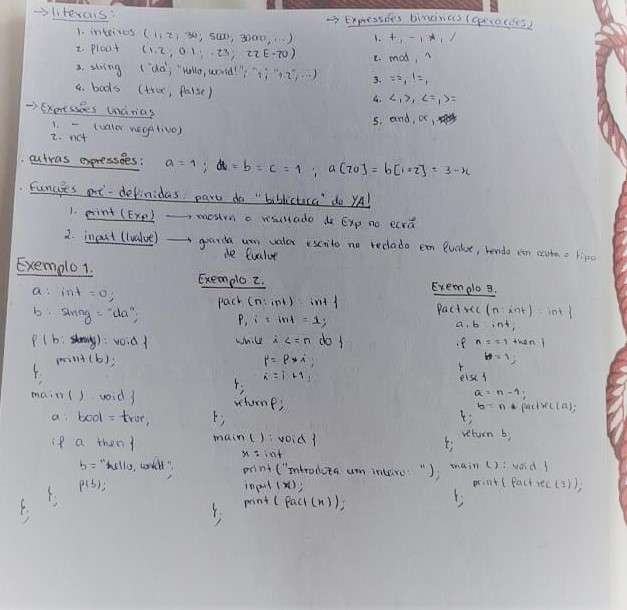 → literais:
1. inteiros (1, 2, 30, 5000, 30000, ...)
2. float (1.2; 0.1; .23; 22E-20)
3. string ("da"; "Hello, world!"; "1"; "1.2", ...)
4. bools (true, false)
→ Expressões binárias (operações)
1. +, -, *, /
2. mod, ^
3. ==, !=,
4. <, >, <=, >=
5. and, or,
→ Expressões Unárias
1. - (valor negativo)
2. not
. outras expressões: a = 1 ; = b = c = 1 ; a[20] = b[i=2] = 3-x
. Funções pré-definidas: parte da "biblioteca" do YA!
1. print (Exp) → mostra o resultado de Exp no ecrã
2. input (lvalue) → guarda um valor escrito no teclado em lvalue, tendo em conta o tipo
de lvalue
Exemplo 1.
a: int = 0;
b: string = "da";
f(b: string): void {
print(b);
};
main(): void {
a: bool = true,
if a then {
b = "hello, world!";
f(b);
};
};
Exemplo 2.
fact (n: int): int {
f, i = int = 1;
while i <= n do {
f = f * i;
i = i + 1;
};
return f;
};
main(): void {
x = int
print("Introduza um inteiro: ");
input(x);
print(fact(x));
};
Exemplo 3.
factrec (n: int): int {
a, b: int;
if n == 1 then {
b = 1;
}
else {
a = n - 1;
b = n * factrec(a);
};
return b,
};
main(): void {
print(factrec(3));
};